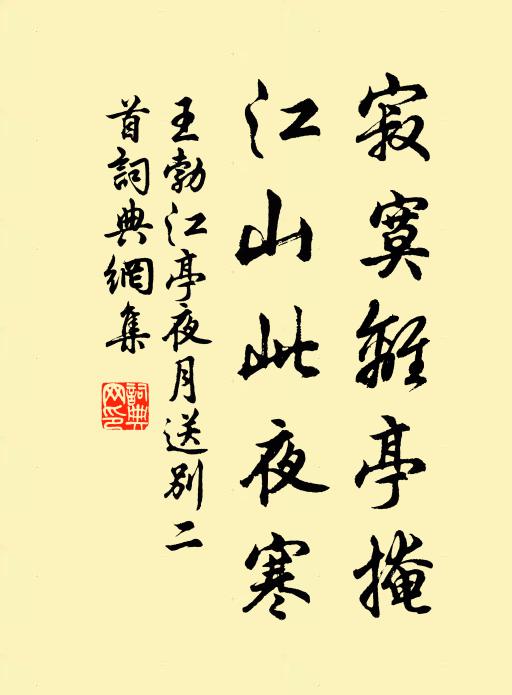 寂寞離亭掩
江山此夜寒
王勃江亭夜月送別二
首詞典網集
詞典
网印